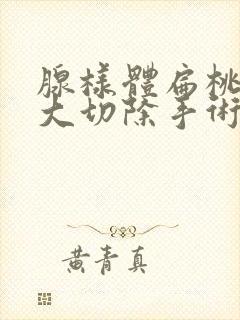 腺樣體扁桃
大切除手術
黃青真